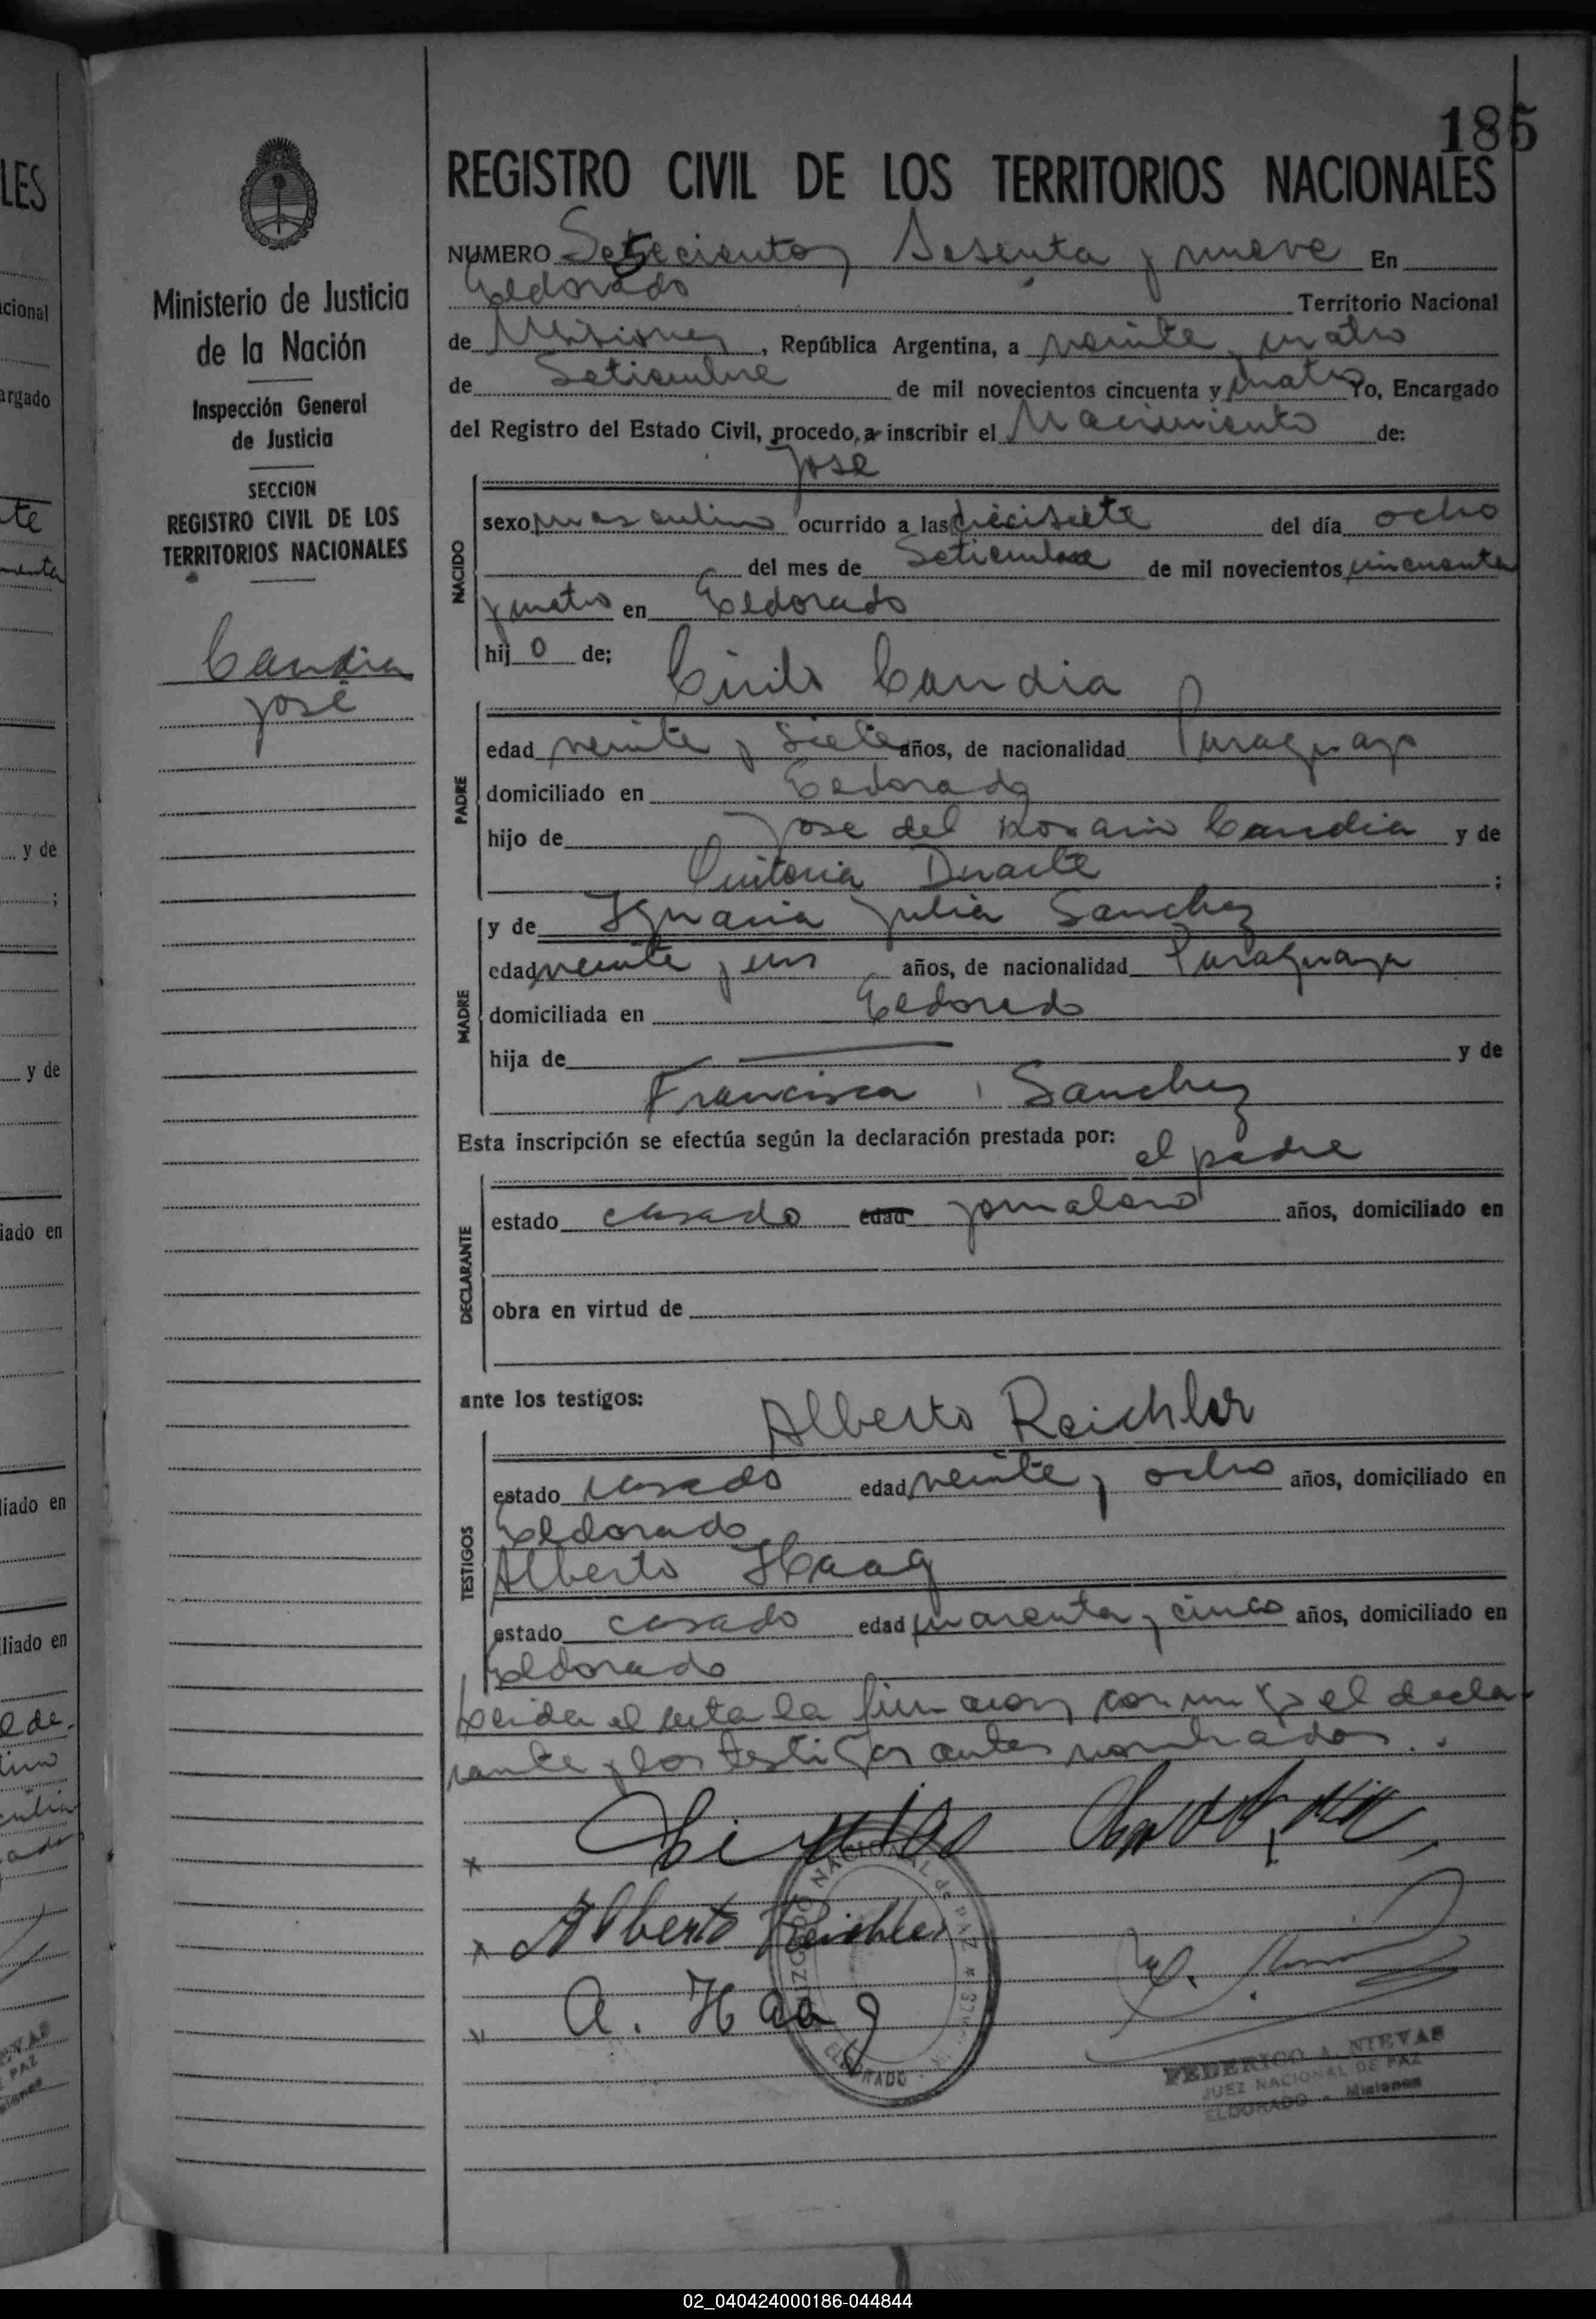 185
REGISTRO CIVIL DE LOS TERRITORIOS NACIONALES
NUMERO Setecientos Sesenta y nueve En
Eldorado Territorio Nacional
de Misiones, República Argentina, a veinte y cuatro
de Setiembre de mil novecientos cincuenta y cuatro Yo, Encargado
del Registro del Estado Civil, procedo, a inscribir el Nacimiento de:
Jose
NACIDO
sexo masculino ocurrido a las diecisiete del día ocho
del mes de Setiembre de mil novecientos cincuenta
y cuatro en Eldorado
hijo de;
Cirilo Candia
PADRE
edad veinte y siete años, de nacionalidad Paraguayo
domiciliado en Eldorado
hijo de Jose del Rosario Candia y de
Duarte ;
MADRE
y de Ignacia Julia Sanchez
edad veinte y un años, de nacionalidad Paraguaya
domiciliada en Eldorado
hija de y de
Francisca Sanchez
Esta inscripción se efectúa según la declaración prestada por: el padre
DECLARANTE
estado casado edad jornalero años, domiciliado en
obra en virtud de
ante los testigos:
Alberto Reichler
TESTIGOS
estado casado edad veinte y ocho años, domiciliado en
Eldorado
Alberto Haag
estado casado edad cuarenta y cinco años, domiciliado en
Eldorado
Leida el acta la firmaron conmigo el decla-
rante y los testigos antes nombrados..
x Cirilo
x Alberto Reichler
A. Haag
JUZGADO NACIONAL de PAZ
ELDORADO
FEDERICO A. NIEVAS
JUEZ NACIONAL DE PAZ
ELDORADO - Misiones
Ministerio de Justicia
de la Nación
Inspección General
de Justicia
SECCION
REGISTRO CIVIL DE LOS
TERRITORIOS NACIONALES
Candia
José
LES
cional
argado
te
y de
;
y de
iado en
liado en
liado en
02_040424000186-044844